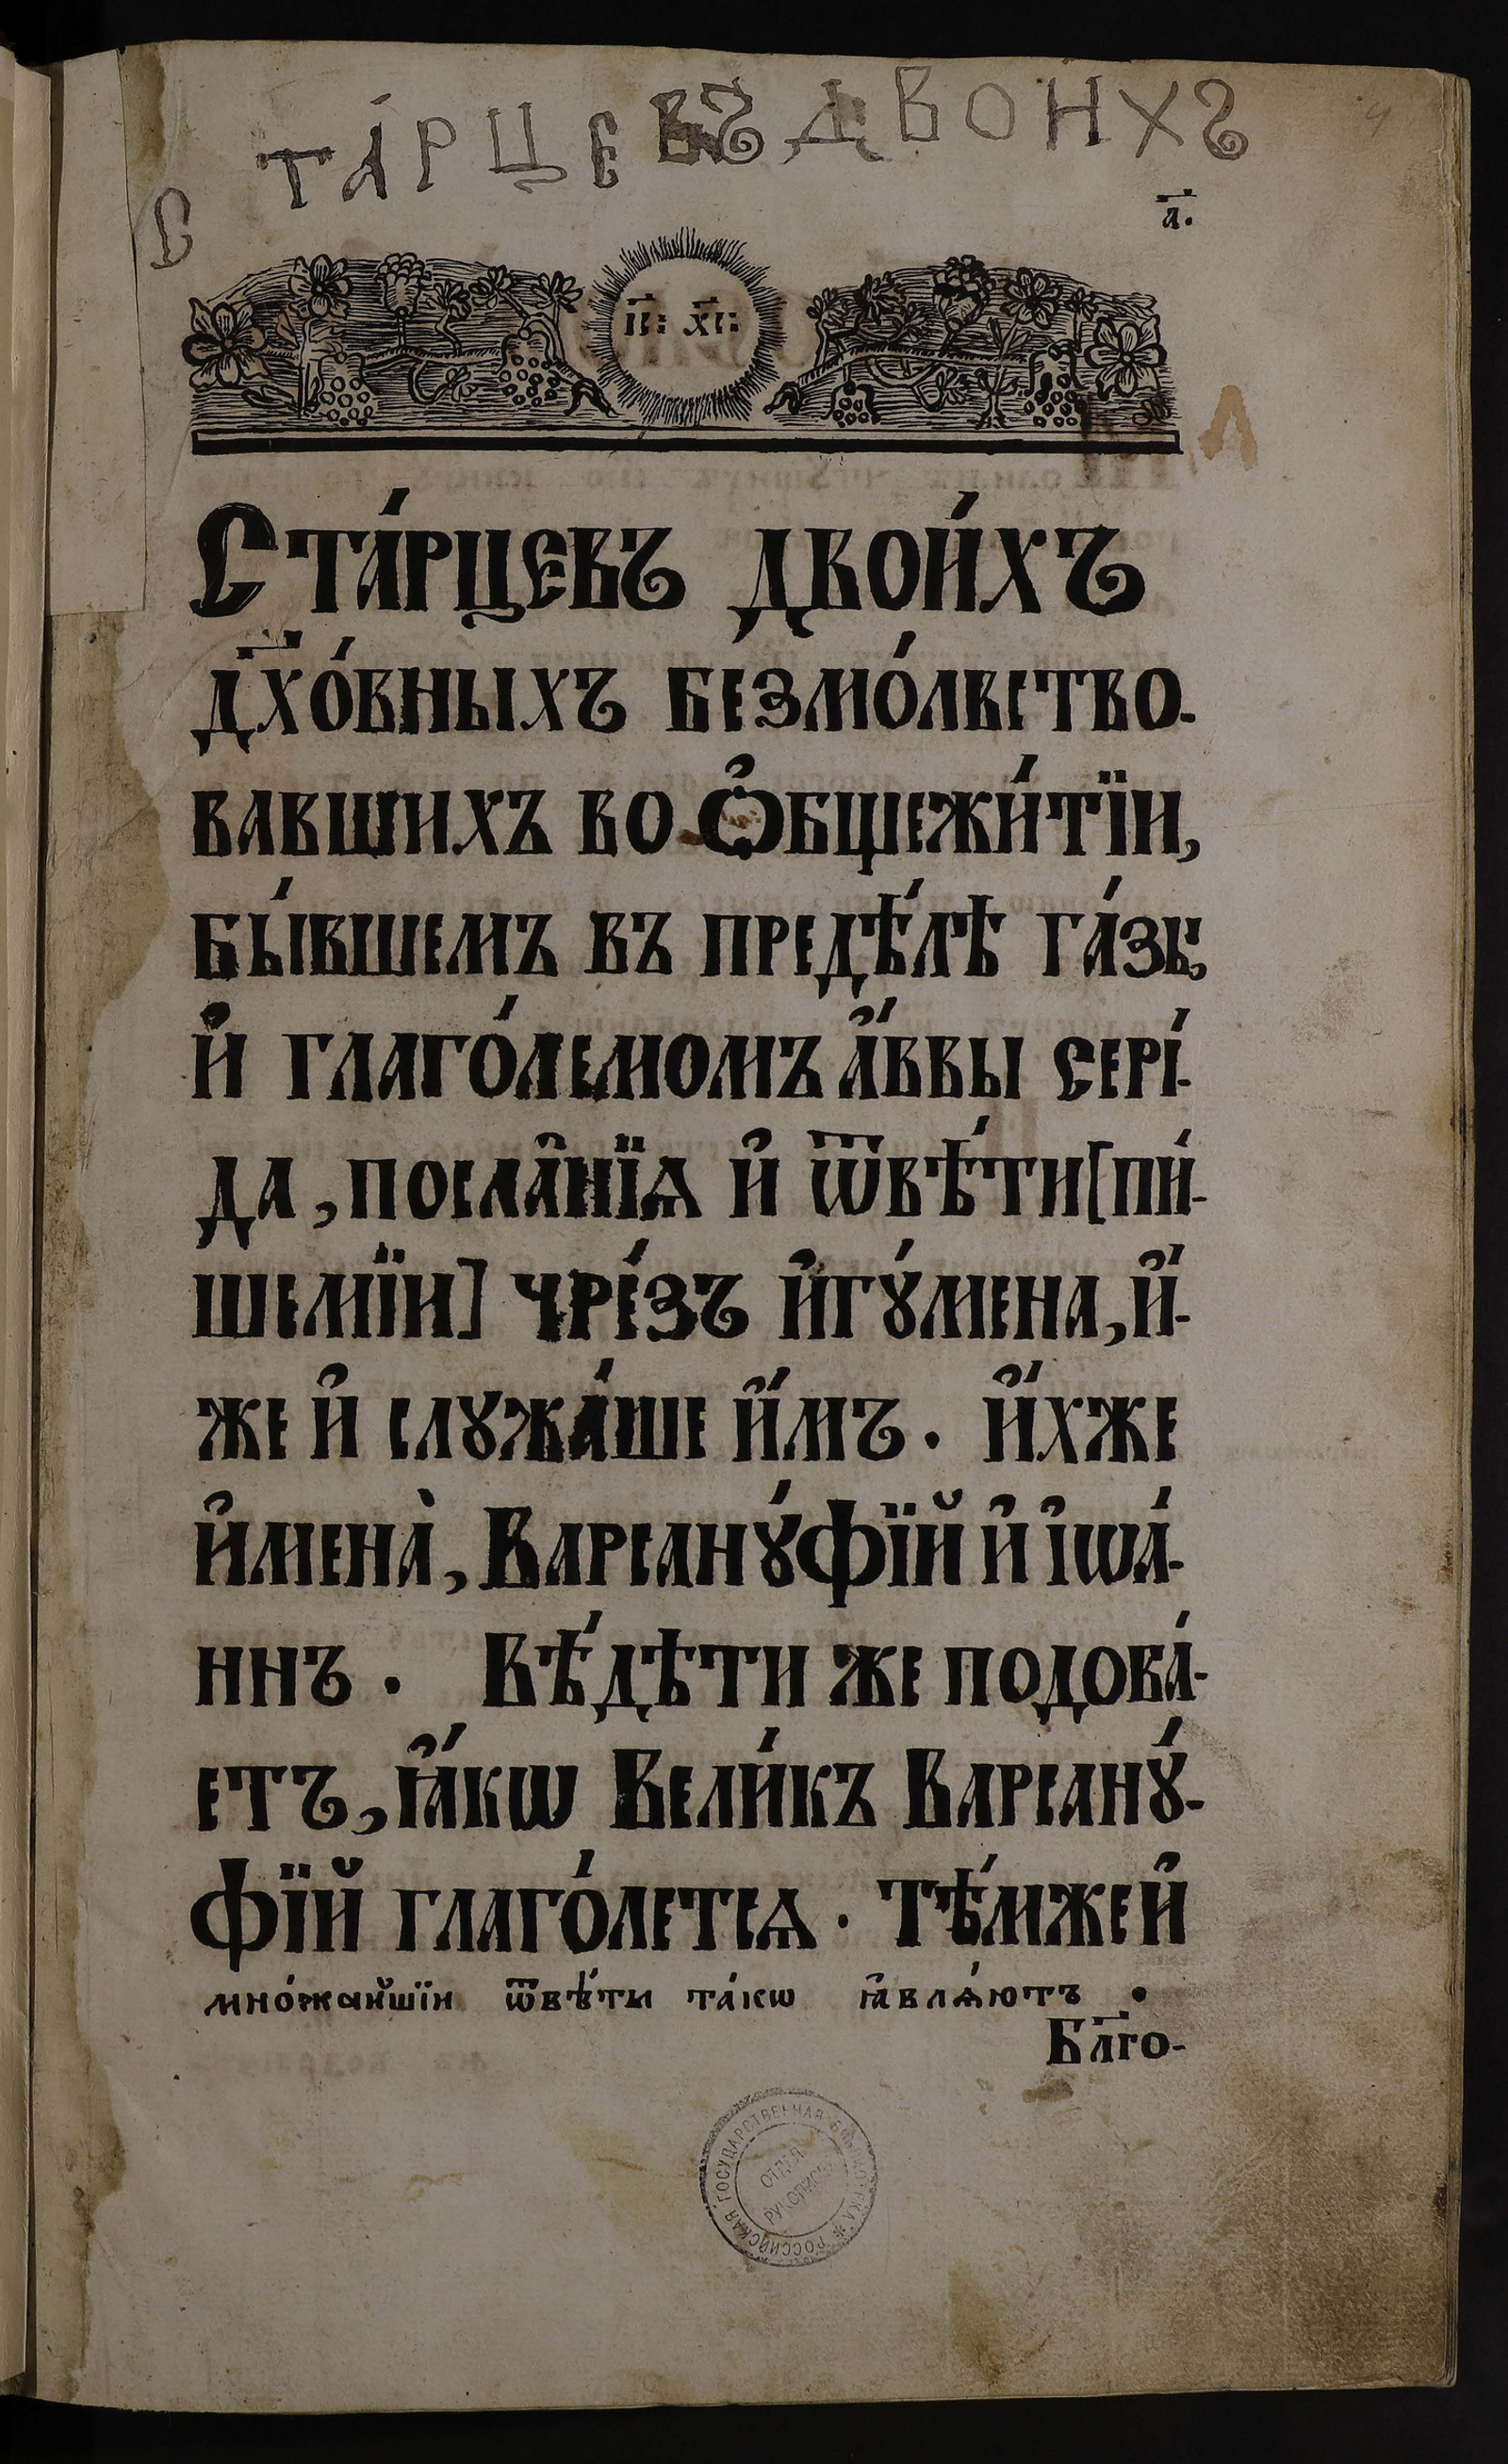 СТА́РЦЕВЪ ДВОИХЪ
4
а҃.
І҃І: Х҃І:
Ста́рцевъ двои́хъ
дх҃о́вныхъ безмо́лвство-
вавшихъ во ѻ҆бщежи́тїи,
бы́вшемъ въ предѣ́лѣ га́зы,
и҆ глаго́лемомъ а҆́ввы сері́-
да, посла̑нїѧ и҆ ѿвѣ́ти [пи́-
шемїи] чре́зъ и҆гꙋ́мена, и҆́-
же и҆ слꙋжа́ше и҆̀мъ. и҆́хже
и҆мена̀, Варсанꙋ́фїй и҆ і҆ѡа́-
ннъ. Вѣ́дѣти же подоба́-
етъ, ꙗ҆́кѡ Вели́къ Варсанꙋ́-
фїй глаго́летсѧ. тѣ́мже и҆
мно́жайшїи ѿвѣ́ты та́кѡ ꙗ҆влѧ́ютъ .
Бл҃го-
РОССИЙСКАЯ ГОСУДАРСТВЕННАЯ БИБЛИОТЕКА *
ОТДЕЛ
РУКОПИСЕЙ